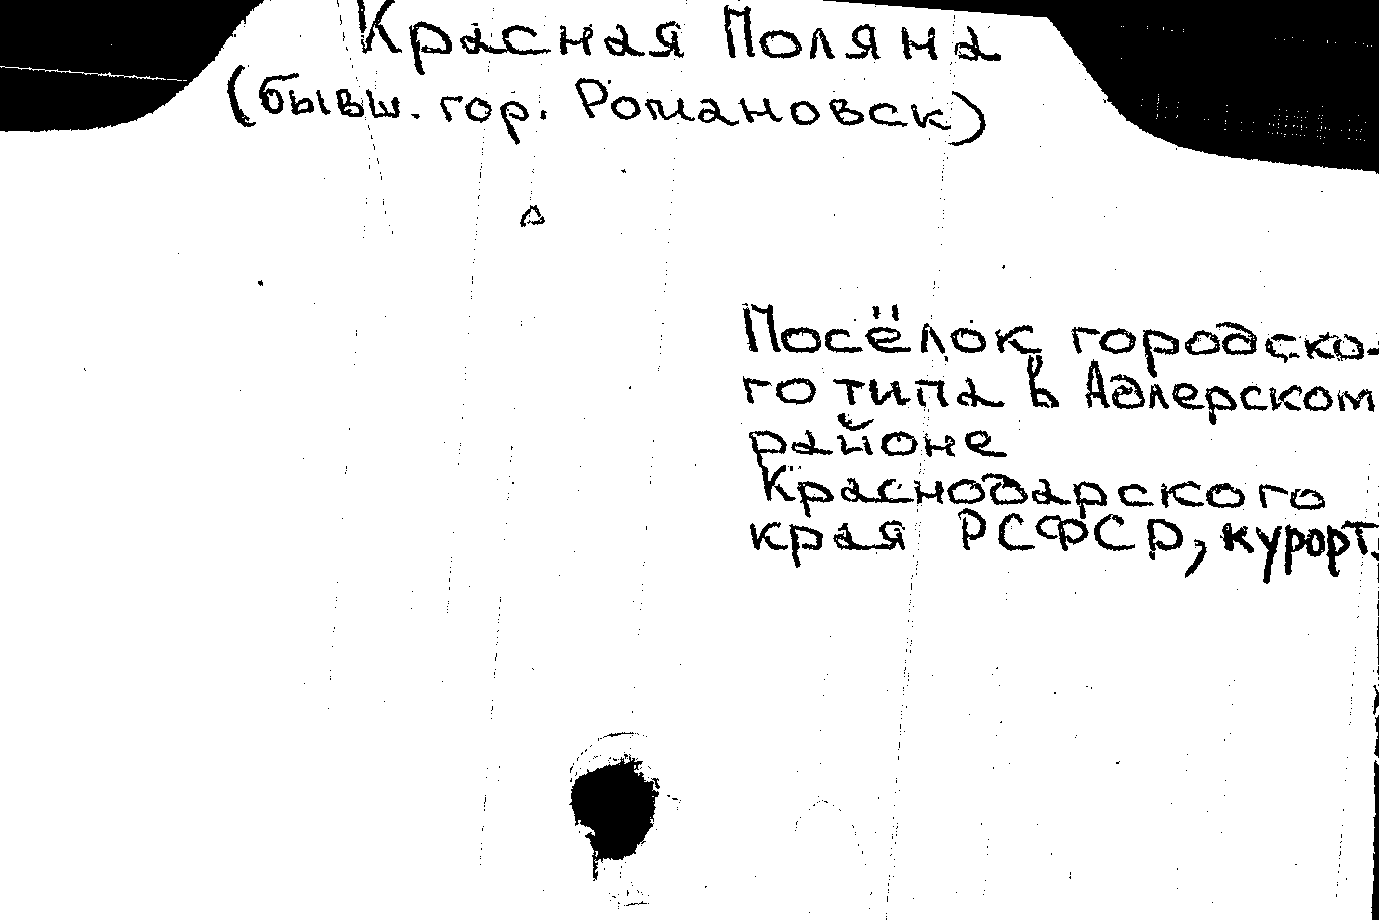 Красная Поляна
(бывш. гор. Романовск)
Посёлок городско-
го типа в Адлерском
районе
Краснодарского
края РСФСР, курорт.